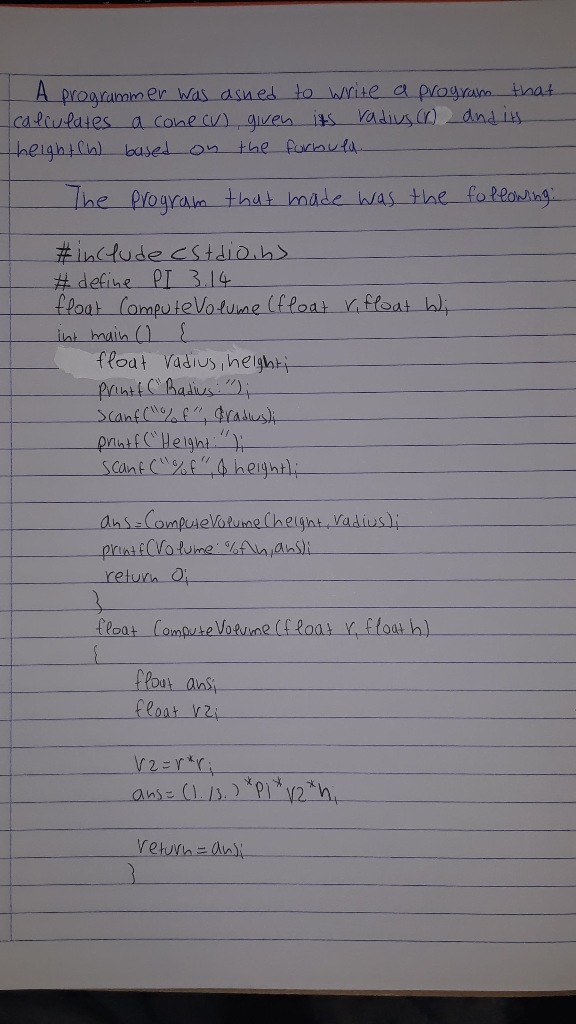 A programmer was asked to write a program that
calculates a cone (v), given its radius (r) and its
height (h) based on the formula.
The program that made was the following:
#include <stdio.h>
# define PI 3.14
float ComputeVolume (float r, float h);
int main () {
float radius, height;
printf("Radius: ");
scanf("%f", &radius);
printf("Height: ");
scanf("%f", & height);
ans = ComputeVolume(height, radius);
printf(Volume: %f\n, ans);
return 0;
}
float ComputeVolume (float r, float h)
{
float ans;
float r2;
r2 = r*r;
ans = (1./3.)*PI*r2*h;
return = ans;
}